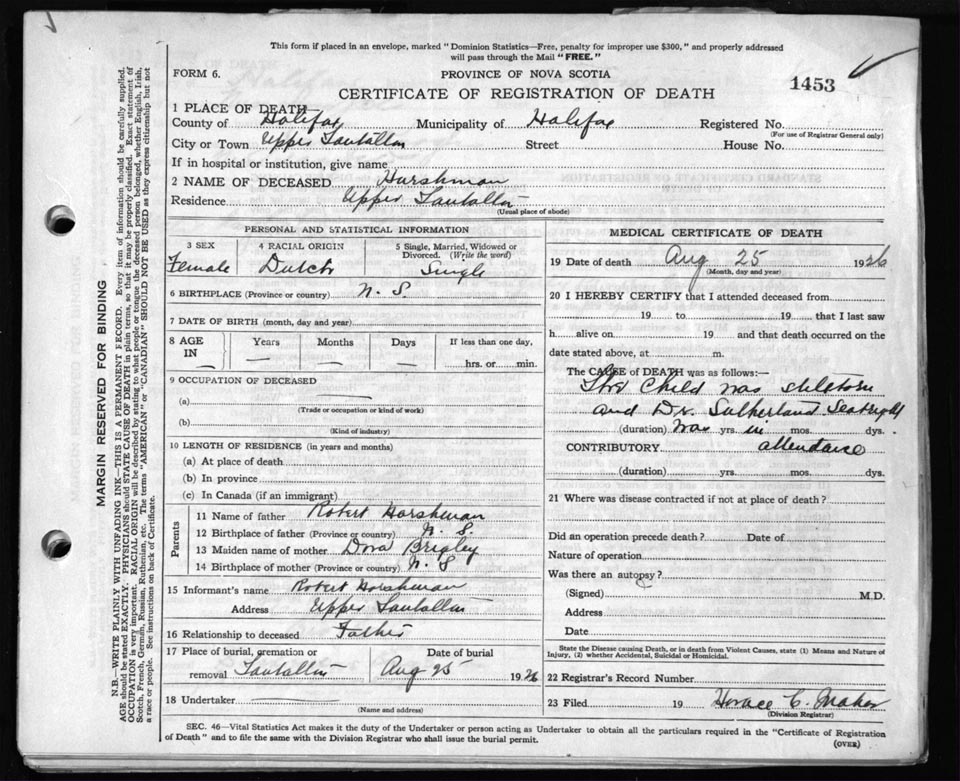 This form if placed in an envelope, marked "Dominion Statistics—Free, penalty for improper use $300," and properly addressed
will pass through the Mail "FREE."
FORM 6.
PROVINCE OF NOVA SCOTIA
CERTIFICATE OF REGISTRATION OF DEATH
1453
1 PLACE OF DEATH
County of Halifax Municipality of Halifax Registered No.
(For use of Registrar General only)
City or Town Upper Tantallon Street House No.
If in hospital or institution, give name
2 NAME OF DECEASED Harshman
Residence Upper Tantallon
(Usual place of abode)
PERSONAL AND STATISTICAL INFORMATION
3 SEX 4 RACIAL ORIGIN 5 Single, Married, Widowed or
Divorced. (Write the word)
Female Dutch Single
6 BIRTHPLACE (Province or country) N. S.
7 DATE OF BIRTH (month, day and year)
8 AGE IN Years Months Days If less than one day,
— — — hrs. or min.
9 OCCUPATION OF DECEASED
(a) —
(Trade or occupation or kind of work)
(b)
(Kind of industry)
10 LENGTH OF RESIDENCE (in years and months)
(a) At place of death
(b) In province
(c) In Canada (if an immigrant)
Parents
11 Name of father Robert Harshman
12 Birthplace of father (Province or country) N. S.
13 Maiden name of mother Dora Brigley
14 Birthplace of mother (Province or country) N. S
15 Informant's name Robert Harshman
Address Upper Tantallon
16 Relationship to deceased Father
17 Place of burial, cremation or
removal Tantallon
Date of burial
Aug 25 1926
18 Undertaker
(Name and address)
MEDICAL CERTIFICATE OF DEATH
19 Date of death Aug 25 1926
(Month, day and year)
20 I HEREBY CERTIFY that I attended deceased from
19 to 19 that I last saw
h alive on 19 and that death occurred on the
date stated above, at m.
The CAUSE of DEATH was as follows:—
The Child was stillborn
and Dr. Sutherland Seabright
(duration) was yrs. in mos. dys.
CONTRIBUTORY attendance
(duration) yrs. mos. dys.
21 Where was disease contracted if not at place of death?
Did an operation precede death? Date of
Nature of operation
Was there an autopsy?
(Signed) M.D.
Address
Date
State the Disease causing Death, or in death from Violent Causes, state (1) Means and Nature of
Injury, (2) whether Accidental, Suicidal or Homicidal.
22 Registrar's Record Number
23 Filed 19 Horace C.
(Division Registrar)
SEC. 46—Vital Statistics Act makes it the duty of the Undertaker or person acting as Undertaker to obtain all the particulars required in the "Certificate of Registration
of Death" and to file the same with the Division Registrar who shall issue the burial permit.
(OVER)
MARGIN RESERVED FOR BINDING
N.B.—WRITE PLAINLY WITH UNFADING INK—THIS IS A PERMANENT RECORD. Every item of information should be carefully supplied.
AGE should be stated EXACTLY. PHYSICIANS should STATE CAUSE OF DEATH in plain terms, so that it may be properly classified. Exact statement of
OCCUPATION is very important. RACIAL ORIGIN will be described by stating to what people or tongue the deceased person belonged, whether English, Irish,
Scotch, French, German, Russian, Ruthenian, etc. The terms "AMERICAN" or "CANADIAN" SHOULD NOT BE USED as they express citizenship but not
a race or people. See instructions on back of Certificate.